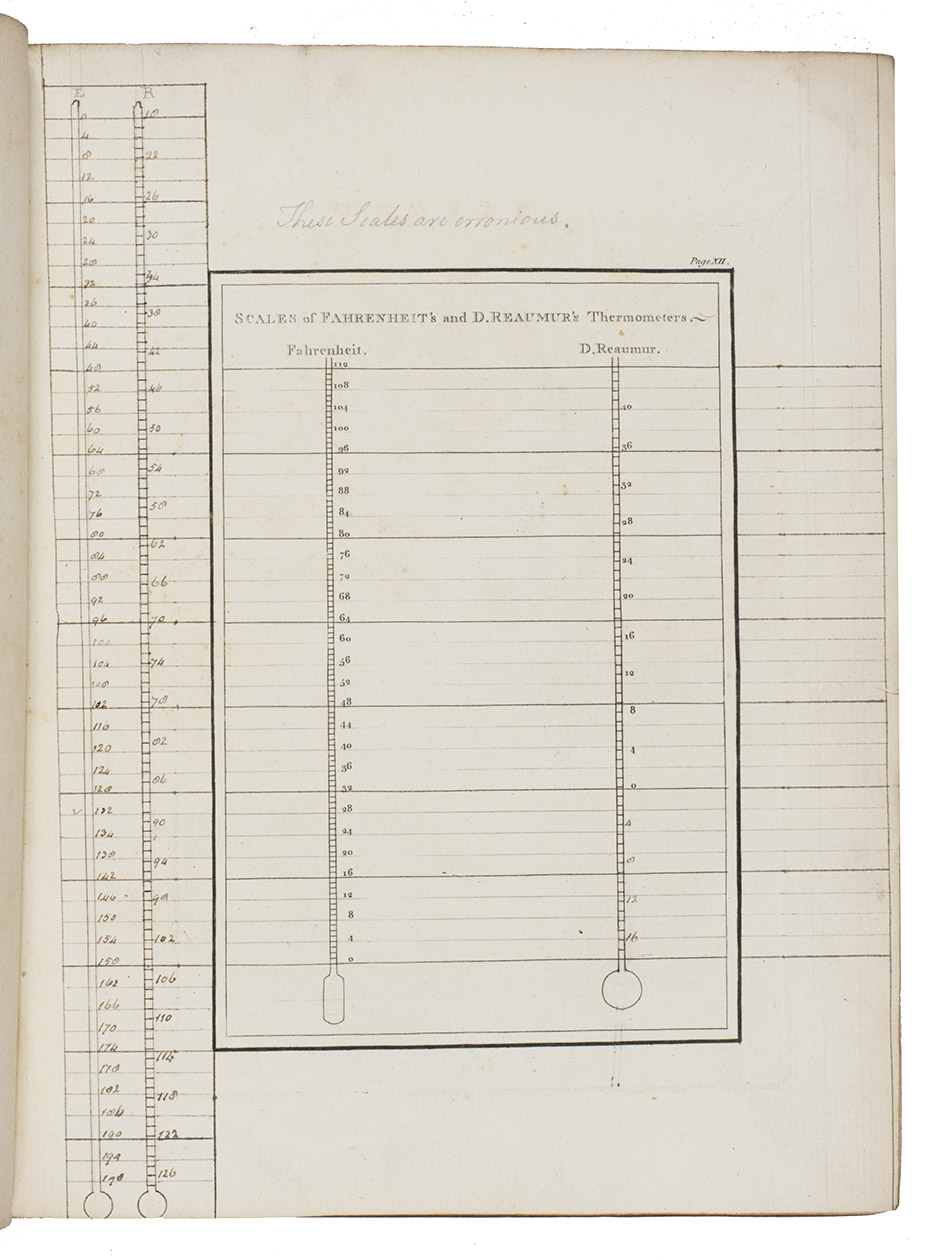 F
0
4
8
12
16
20
24
28
32
36
40
44
48
52
56
60
64
68
72
76
80
84
88
92
96
100
104
108
112
116
120
124
128
132
134
138
142
146
150
154
158
162
166
170
174
178
182
186
190
194
198
R
18
22
26
30
34
38
42
46
50
54
58
62
66
70
74
78
82
86
90
94
98
102
106
110
114
118
122
126
These Scales are erronious.
Page XII.
SCALES of FAHRENHEIT's and D.REAUMUR's Thermometers.
Fahrenheit.
112
108
104
100
96
92
88
84
80
76
72
68
64
60
56
52
48
44
40
36
32
28
24
20
16
12
8
4
0
D.Reaumur.
40
36
32
28
24
20
16
12
8
4
0
4
8
12
16